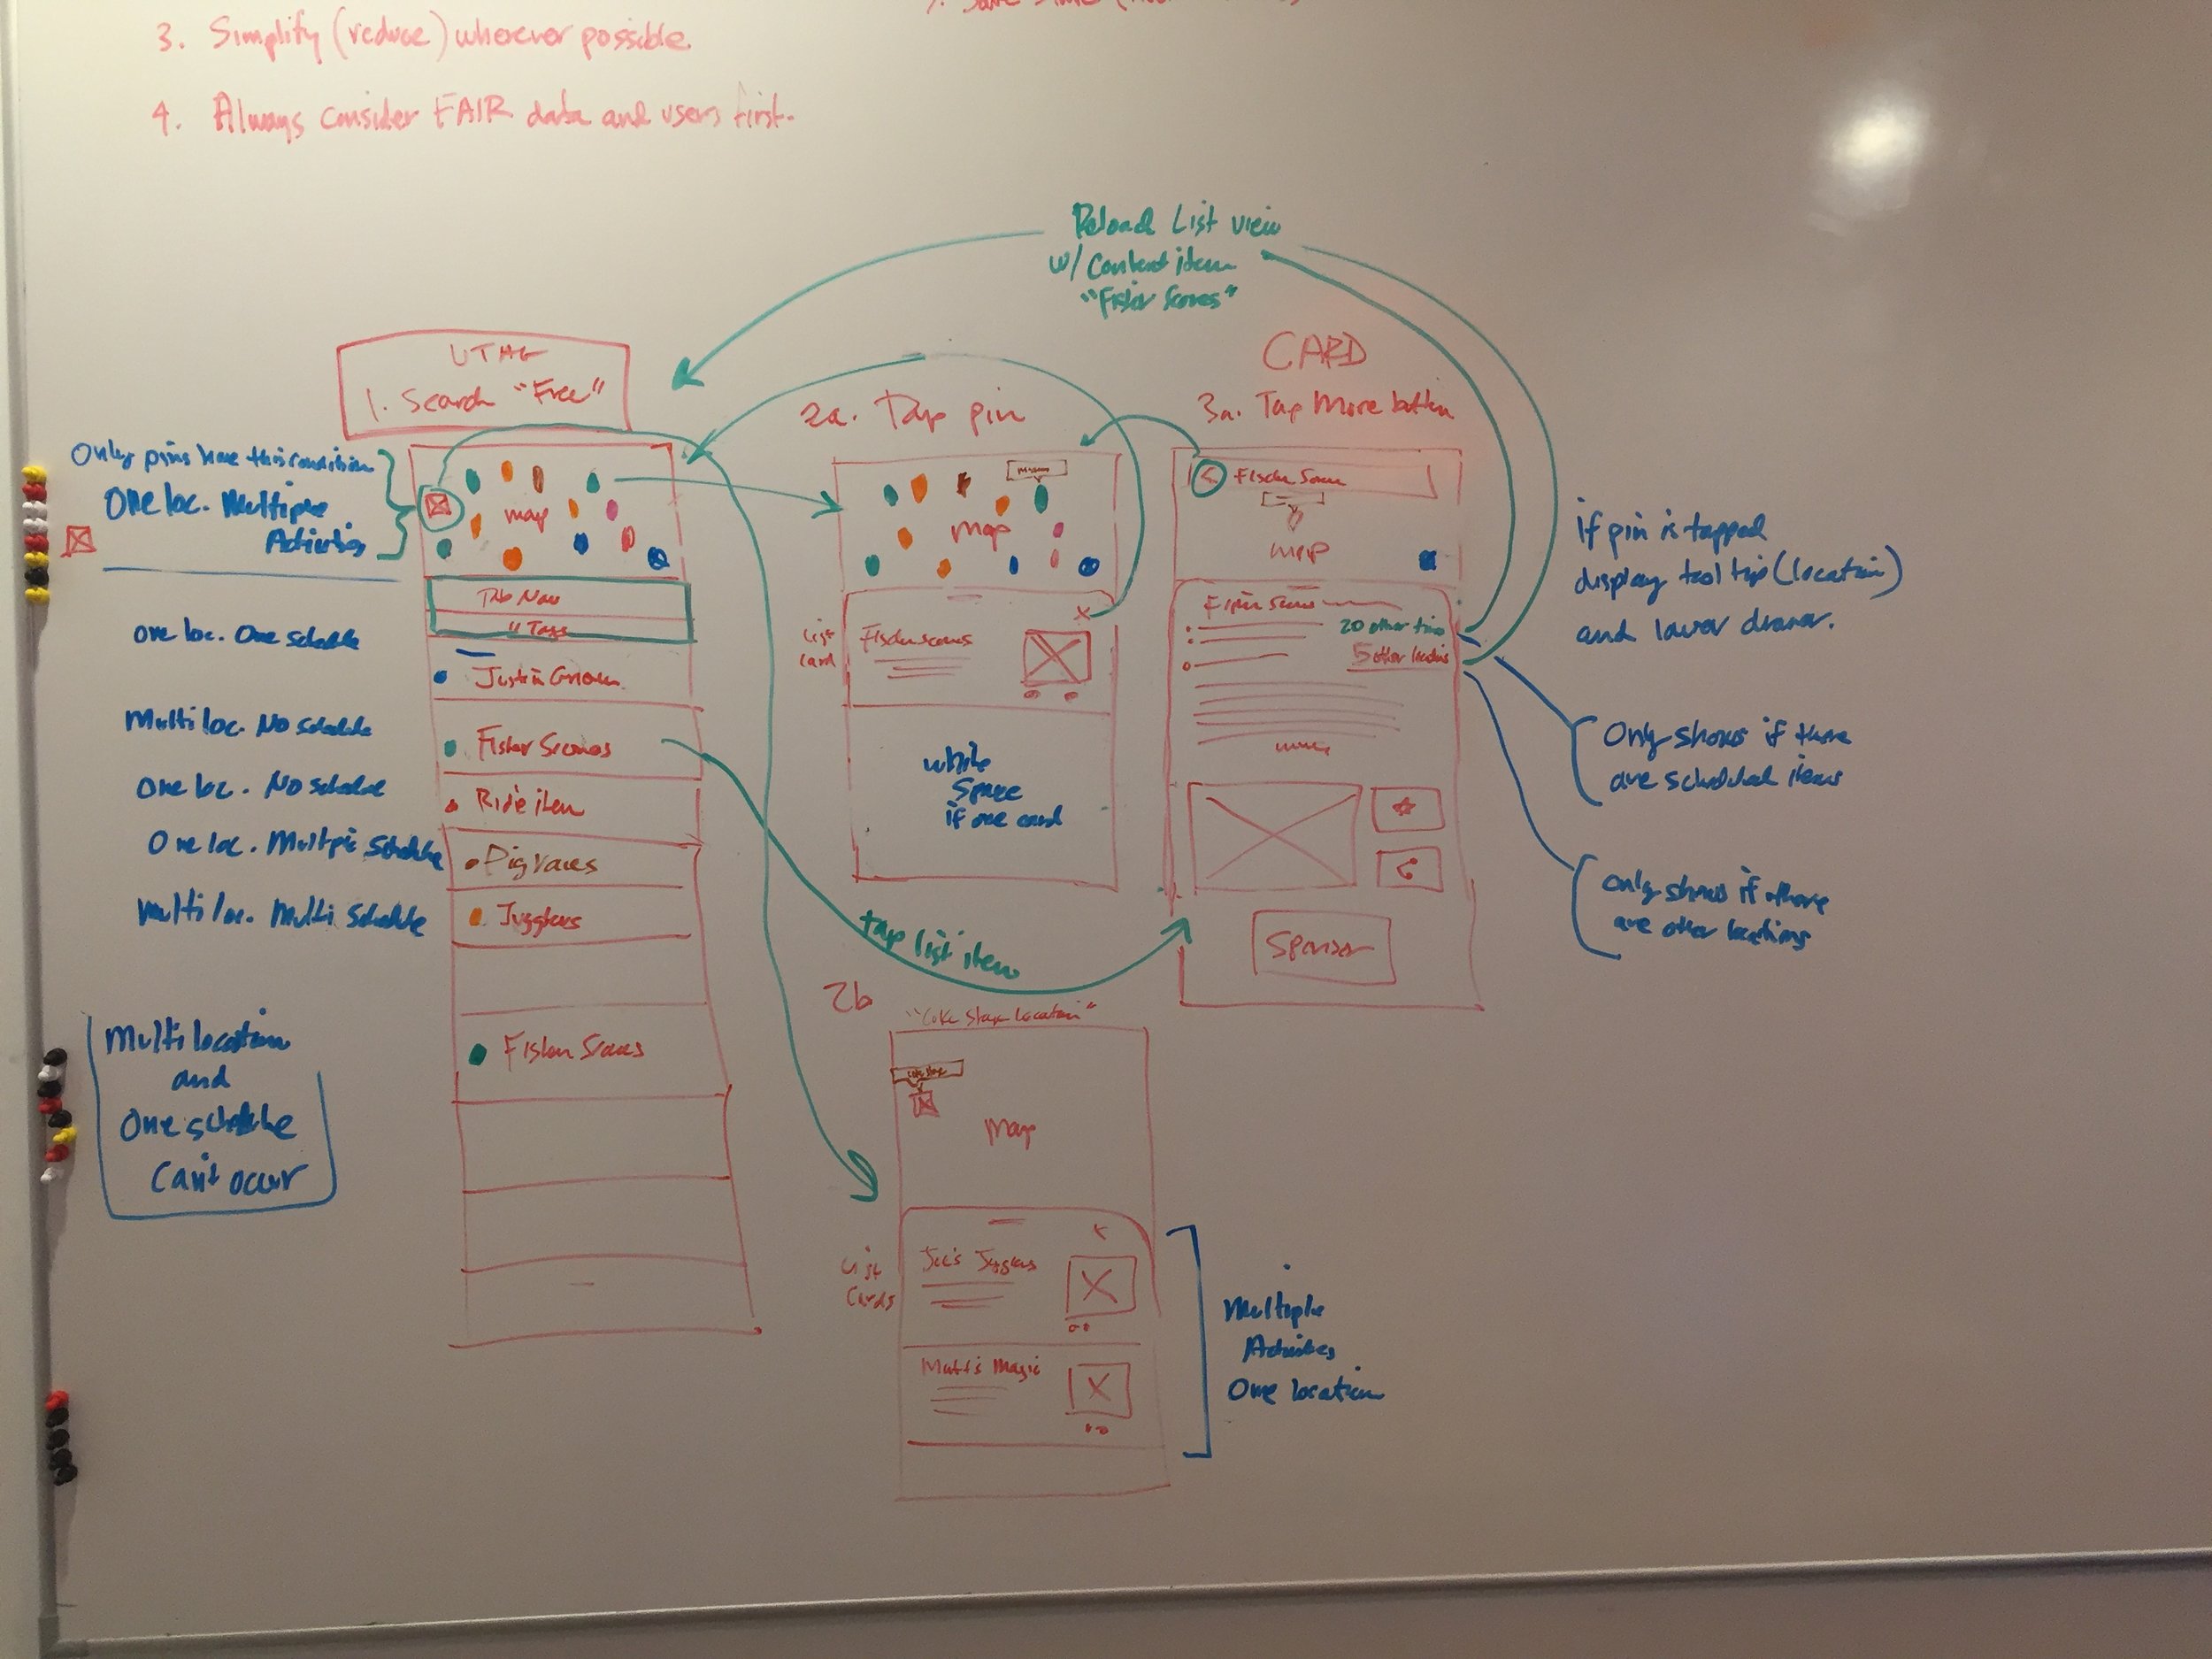 3. Simplify (reduce) wherever possible.
4. Always consider FAIR data and users first.
Reload List view
w/ Content item
UTAG
1. Search "Free"
2a. Tap pin
CARD
3a. Tap More button
Only pins have this condition
One loc. Multiple
Activities
map
map
map
if pin is tapped
display tool tip (location)
and lower drawer.
Tab Nav
" Tags
20 other times
5 other locations
List
Card
one loc. One schedule
Multi loc. No schedule
One loc. No schedule
Ride item
One loc. Multiple Schedule
Pig races
Multi loc. Multi Schedule
Jugglers
white
Space
if one card
more
Sponsor
Only shows if there
are scheduled items
Only shows if there
are other locations
tap list item
Multi location
and
One schedule
Can't occur
2b
"Coke Stage Location"
Coke Stage
map
List
Cards
Joe's Jugglers
Matt's Magic
Multiple
Activities
One location